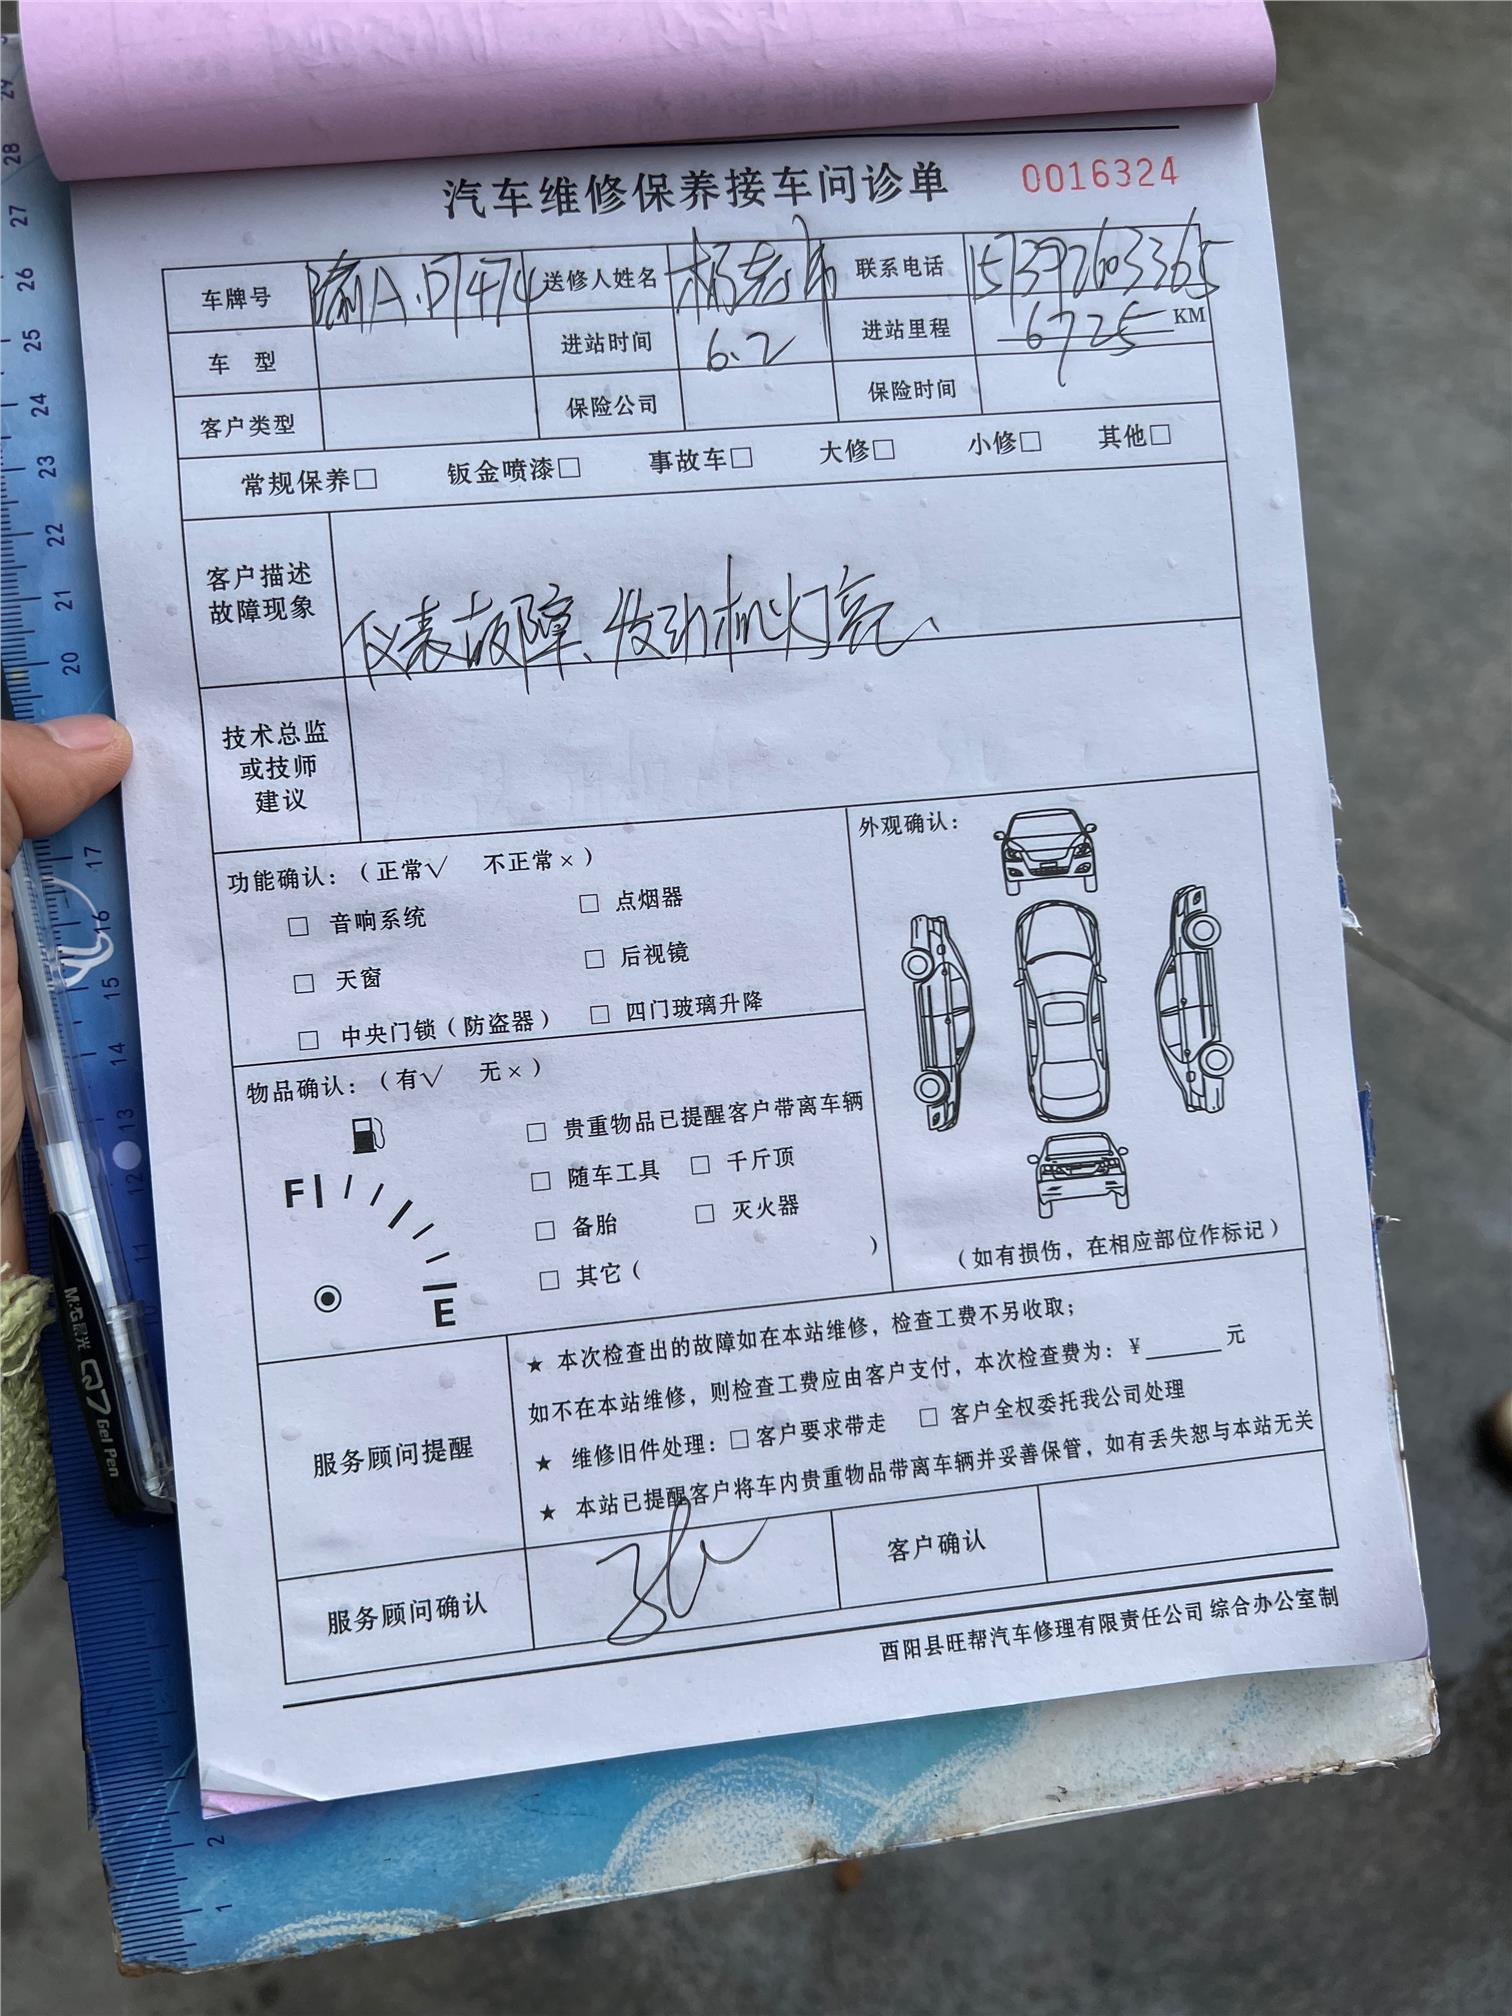 汽车维修保养接车问诊单 0016324
车牌号 渝A·D7474 送修人姓名 杨 联系电话 15739263365
车 型 进站时间 6.2 进站里程 6725 KM
客户类型 保险公司 保险时间
常规保养□ 钣金喷漆□ 事故车□ 大修□ 小修□ 其他□
客户描述
故障现象
仪表故障、发动机灯亮、
技术总监
或技师
建议
功能确认：（正常√ 不正常×）
□ 音响系统 □ 点烟器
□ 天窗 □ 后视镜
□ 中央门锁（防盗器） □ 四门玻璃升降
外观确认：
（如有损伤，在相应部位作标记）
物品确认：（有√ 无×）
F
E
□ 贵重物品已提醒客户带离车辆
□ 随车工具 □ 千斤顶
□ 备胎 □ 灭火器
□ 其它（ ）
服务顾问提醒
★ 本次检查出的故障如在本站维修，检查工费不另收取；
如不在本站维修，则检查工费应由客户支付，本次检查费为：¥______元
★ 维修旧件处理：□客户要求带走 □ 客户全权委托我公司处理
★ 本站已提醒客户将车内贵重物品带离车辆并妥善保管，如有丢失恕与本站无关
服务顾问确认 客户确认
酉阳县旺帮汽车修理有限责任公司 综合办公室制
M&G晨光 Q7 Gel Pen
29
28
27
26
25
24
23
22
21
20
17
16
15
14
13
12
11
2
1